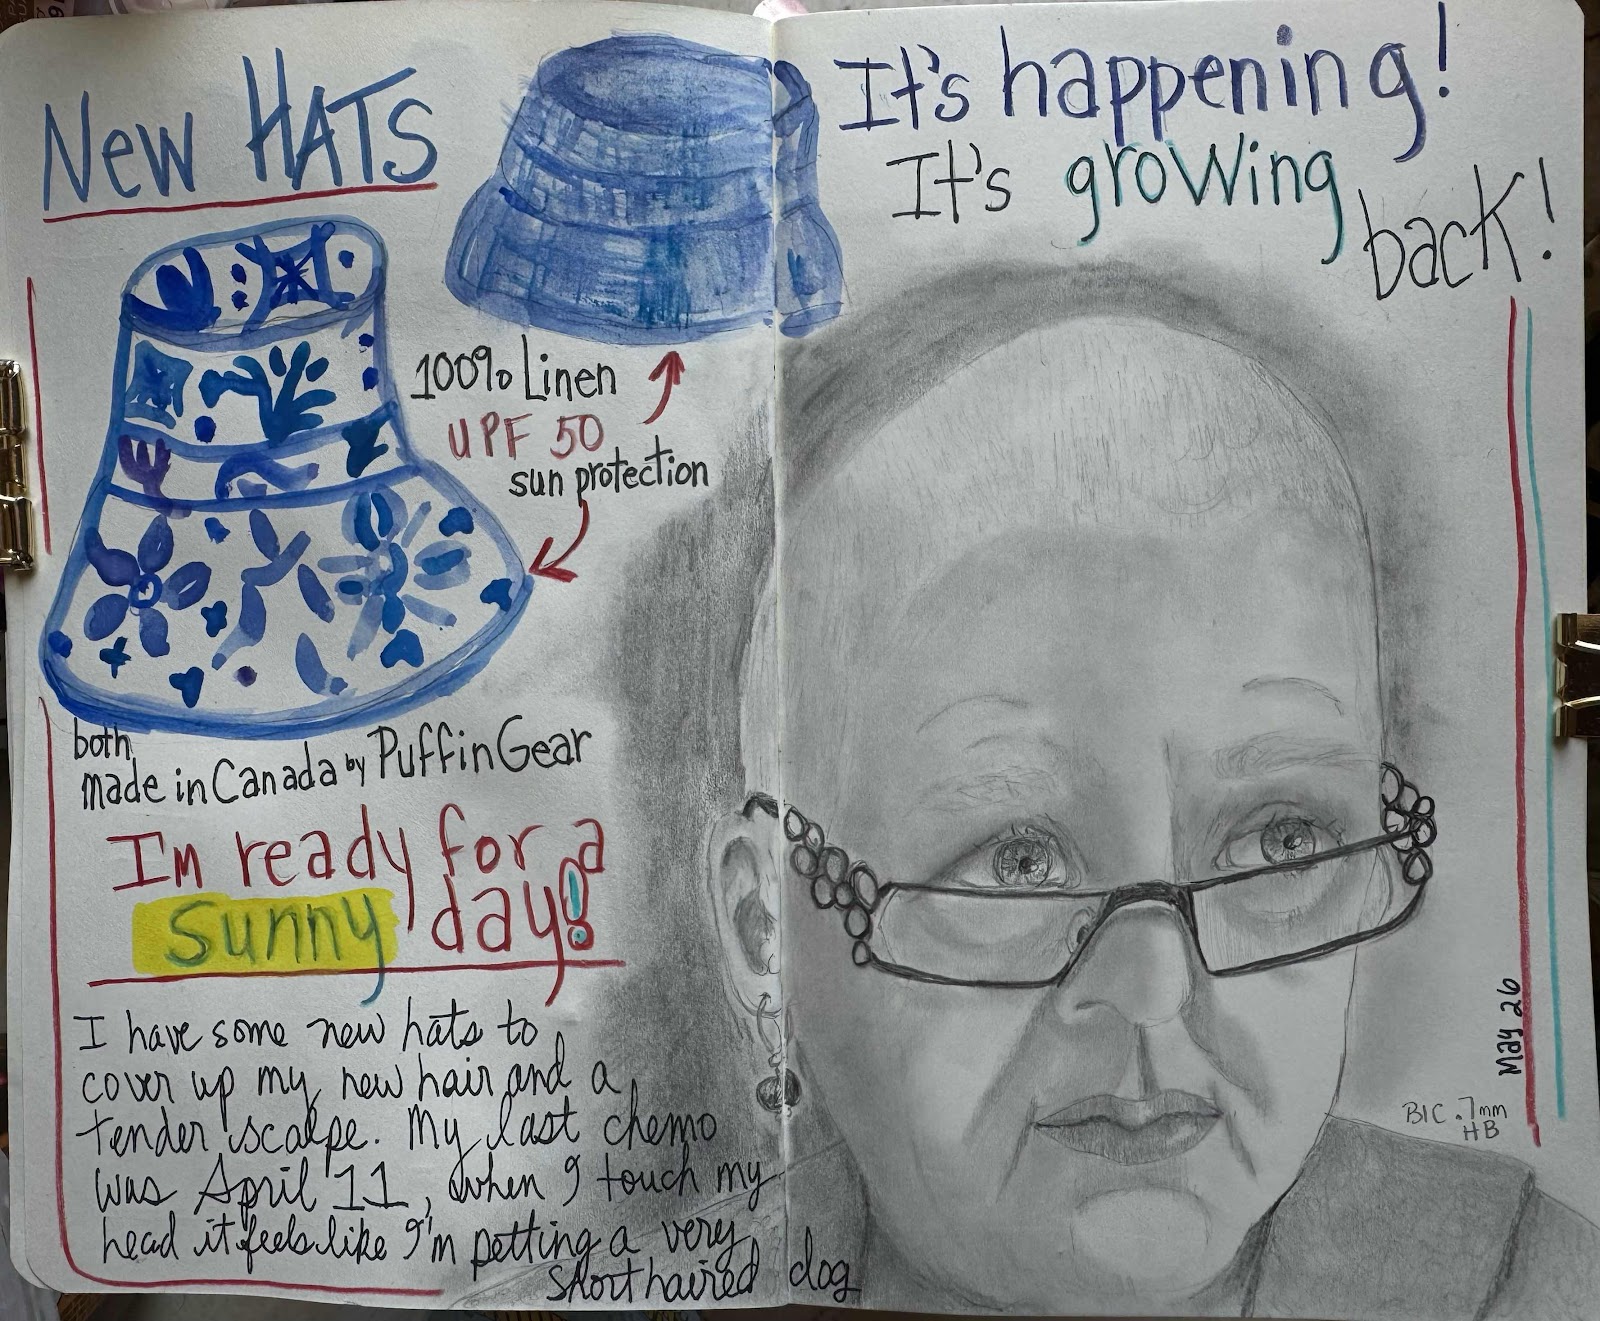 New HATS
100% Linen
UPF 50
sun protection
both
made in Canada by Puffin Gear
I'm ready for a
sunny day!
I have some new hats to
cover up my new hair and a
tender scalpe. My last chemo
was April 11, when I touch my
head it feels like I'm petting a very
short haired dog
It's happening!
It's growing
back!
May 26
BIC .7mm
HB